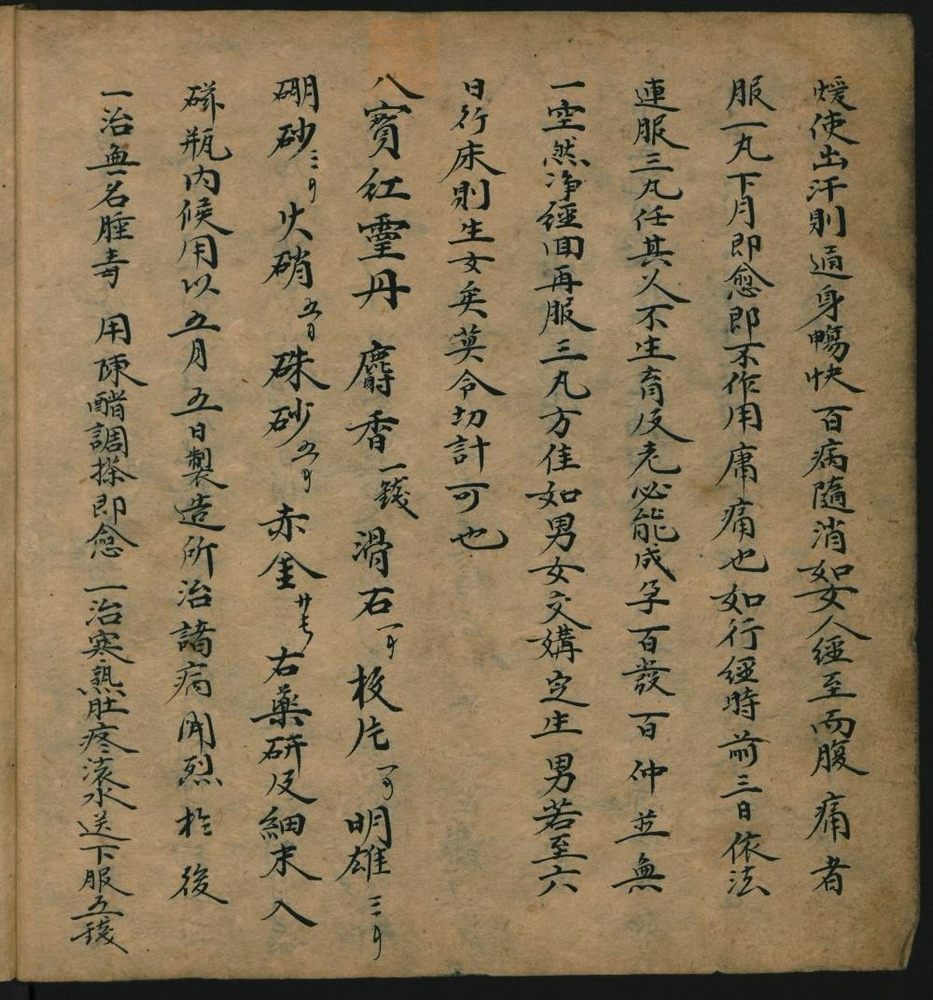 煖使出汗則遍身暢快百病隨消如女人經至而腹痛者
服一丸下月即愈即不作用庸痛也如行經時前三日依法
連服三丸任其人不生育反老必能成孕百發百仲並無
一空然净經回再服三丸方佳如男女交媾定生男若至六
日行床則生女矣莫令切計可也
八寶紅靈丹 麝香一錢 滑石 梅片 明雄
硼砂 火硝 硃砂 赤金 右藥研及細末入
磁瓶内候用以五月五日製造所治諸病開烈於後
一治無名腫毒 用陳醋調搽即愈 一治寒熱肚疼滚水送下服五錢